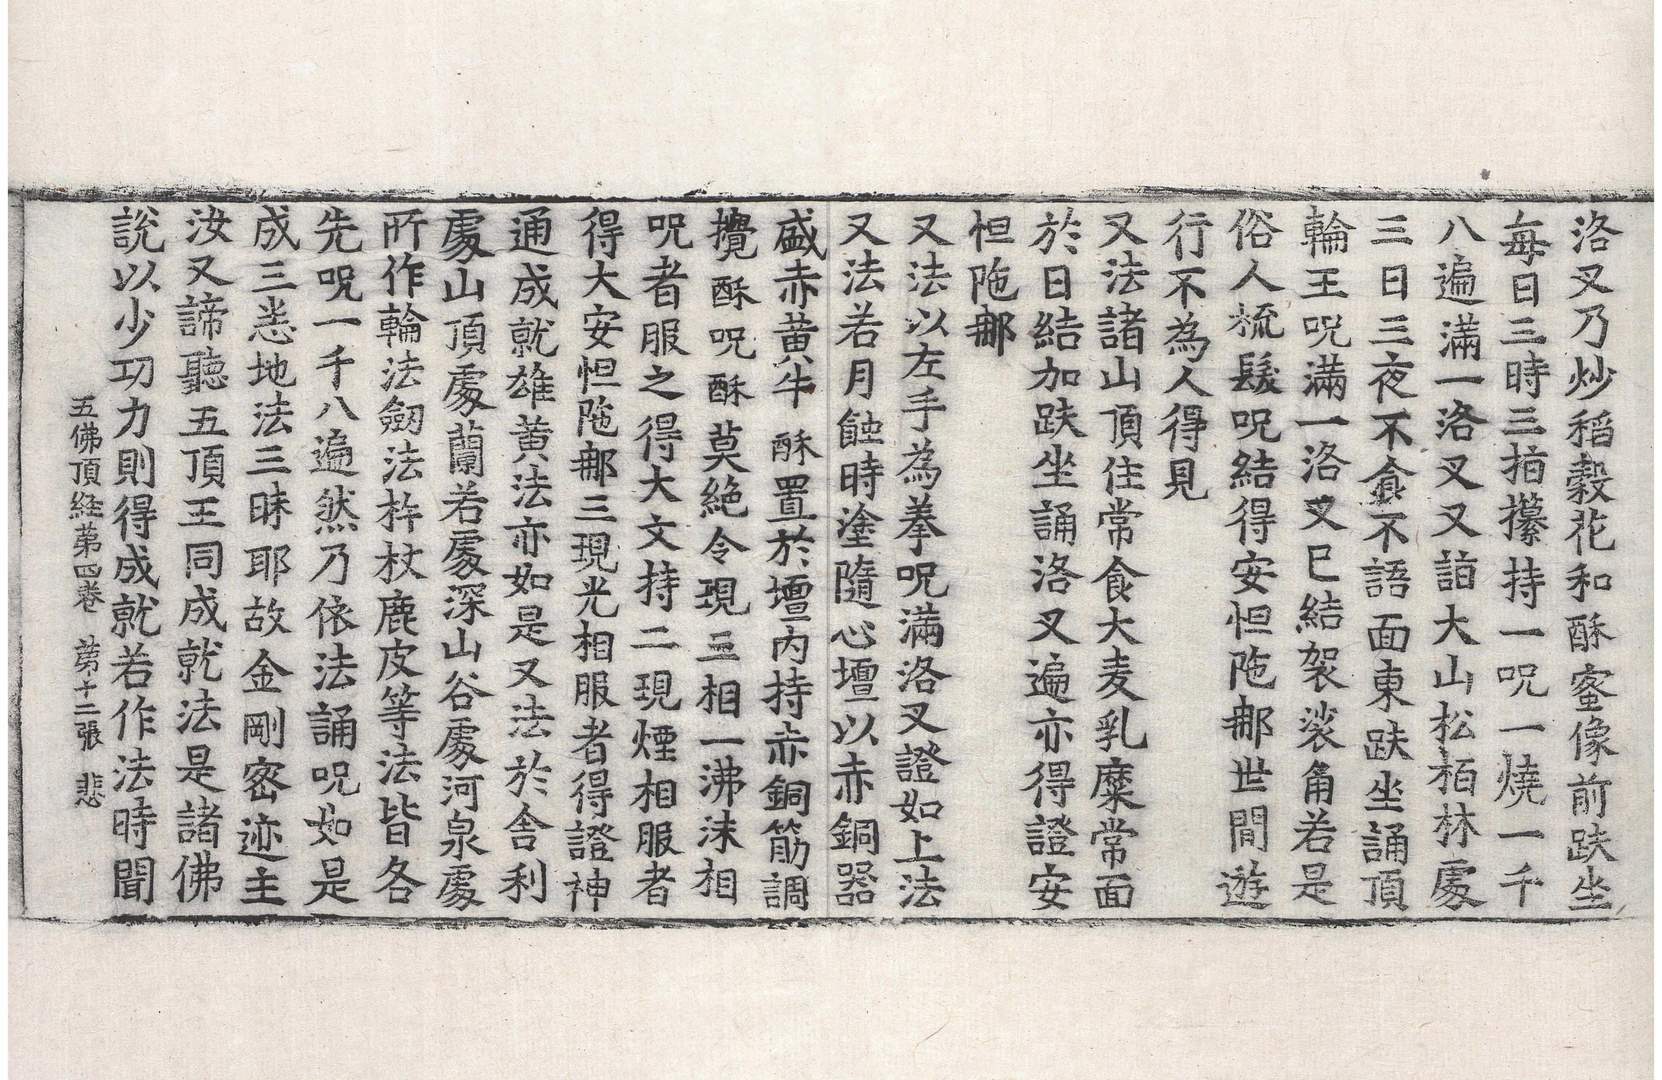 洛叉乃炒稻穀花和酥蜜像前趺坐
每日三時三指攥持一呪一燒一千
八遍滿一洛叉又詣大山松栢林處
三日三夜不飡不語面東趺坐誦頂
輪王呪滿一洛叉已結袈裟角若是
俗人梳髮呪結得安怛陁郍世間遊
行不為人得見
又法諸山頂住常食大麦乳糜常面
於日結加趺坐誦洛叉遍亦得證安
怛陁郍
又法以左手為拳呪滿洛叉證如上法
又法若月蝕時塗隨心壇以赤銅器
盛赤黃牛酥置於壇內持赤銅筋調
攪酥呪酥莫絶令現三相一沸沫相
呪者服之得大文持二現煙相服者
得大安怛陁郍三現光相服者得證神
通成就雄黃法亦如是又法於舎利
處山頂處蘭若處深山谷處河泉處
所作輪法劒法杵杖鹿皮等法皆各
先呪一千八遍然乃依法誦呪如是
成三悉地法三昧耶故金剛密迹主
汝又諦聽五頂王同成就法是諸佛
說以少功力則得成就若作法時聞
五佛頂経苐四卷　苐十二張　悲